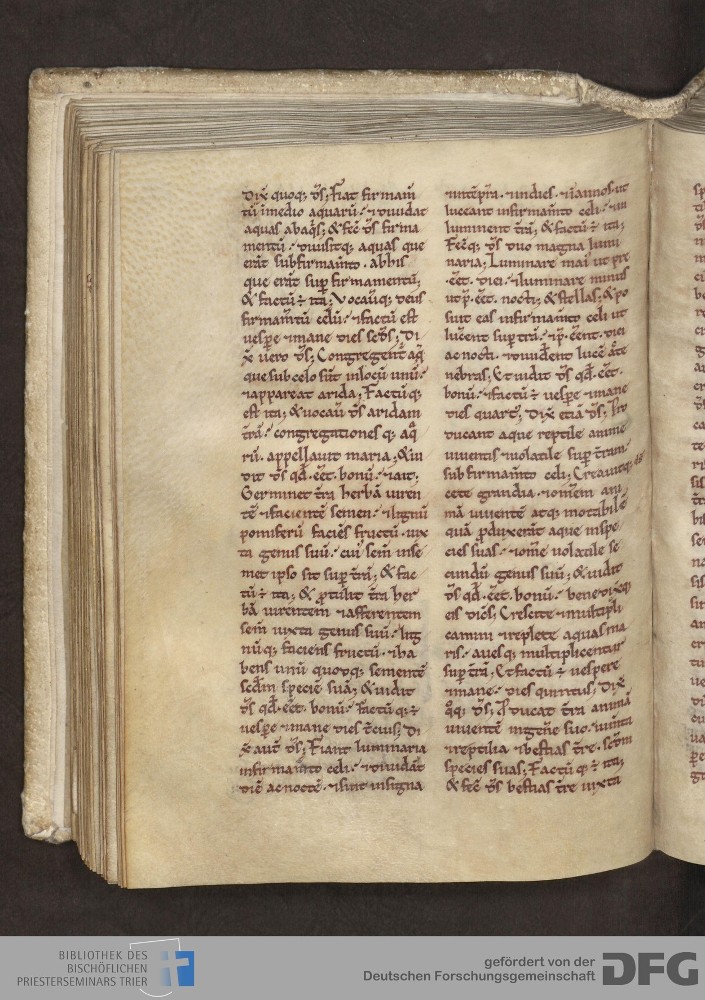 Dix̄ quoq; d̄s; Fiat firmam̄
tū ī medio aquarū. ⁊ diuidat
aquas ab aq̄s; & fec̄ d̄s firma
mentū. diuisitq; aquas que
erāt sub firmam̄to. ab his
que erāt sup̄ firmamentū;
& factū ÷ ita; Vocauitq; deus
firmam̄tū celū. ⁊ factū est
uesp̄e ⁊ mane dies sc̄ds; Di
x̄ uero d̄s; Congregent̄ aq̄
que sub celo sūt in locū unū.
⁊ appareat arida; Factūq;
est ita; & uocauit d̄s aridam
t̄rā. congregationesq; aq̄
rū. appellauit maria; & ui
dit d̄s qd̄ eēt bonū. ⁊ ait;
Germinet t̄ra herbā uiren
tē ⁊ facientē semen. ⁊ lignū
pomiferū faciēs fructū. iux
ta genus suū. cui' sem̄ in se
met ipso sit sup̄ t̄rā; & fac
tū ÷ ita; & p̄tulit t̄ra her
bā uirentem ⁊ afferentem
sem̄ iuxta genus suū. lig
nūq; faciens fructū. ⁊ ha
bens unū quodq; sementē
sc̄dm̄ speciē suā; & uidit
d̄s qd̄ eēt bonū. Factūq; ÷
uesp̄e ⁊ mane dies t̄cius; Di
x̄ aut̄ d̄s; Fiant luminaria
in firmam̄to celi. ⁊ diuidāt
diē ac noctē. ⁊ sint in signa
⁊ in tēpr̄a. ⁊ in dies. ⁊ in annos. ut
luceant in firmam̄to celi. ⁊ in
luminent t̄rā; & factū ÷ ita;
Fecitq; d̄s duo magna lumi
naria; Luminare mai' ut pre
eēt diei. ⁊ luminare minus
ut p̄eēt nocti; & stellas; & po
suit eas in firmam̄to celi ut
lucerent sup̄ t̄rā. ⁊ p̄eēnt diei
ac nocti. ⁊ diuiderent lucē ac te
nebras; Et uidit d̄s qd̄ eēt
bonū. ⁊ factū ÷ uesp̄e ⁊ mane
dies quart'; Dix̄ etiā d̄s; Pro
ducant aque reptile anime
uiuentis ⁊ uolatile sup̄ t̄ram.
sub firmam̄to celi; Creauitq; d̄s
cete grandia. ⁊ om̄em ani
mā uiuentē atq; motabilē
quā p̄duxerāt aque in spe
cies suas. ⁊ om̄e uolatile se
cundū genus suū; & uidit
d̄s qd̄ eēt bonū. benedixitq;
eis dicēs; Crescite ⁊ multipli
camini ⁊ replete aquas ma
ris. auesq; multiplicentur
sup̄ t̄rā; Et factū ÷ uespere
⁊ mane. dies quintus; Dix̄
q̄q; d̄s; Producat t̄ra animā
uiuentē in gen̄e suo. iumta
⁊ reptilia ⁊ bestias t̄re. sc̄dm
species suas; Factūq; ÷ ita;
& fec̄ d̄s bestias t̄re iuxta
BIBLIOTHEK DES
BISCHÖFLICHEN
PRIESTERSEMINARS TRIER
gefördert von der
Deutschen Forschungsgemeinschaft
DFG